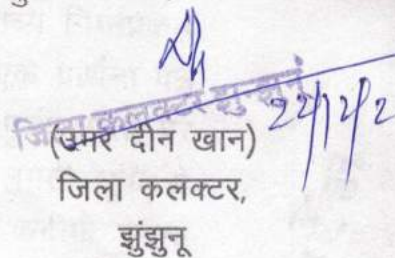 जिला कलक्टर झुन्झुनूं
22/12/2
(उमर दीन खान)
जिला कलक्टर,
झुंझुनू